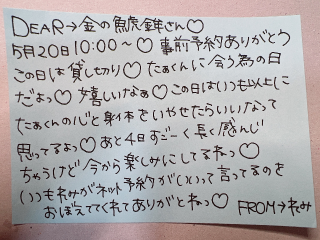 DEAR→金の魚虎鉾さん♡
5月20日10:00~♡ 事前予約ありがとう
この日は貸し切り♡ たぁくんに会う為の日
だよっ♡ 嬉しいなぁ♡ この日はいつも以上に
たぁくんの心と身体をいやせたらいいなって
思ってるよっ♡ あと4日すごーく長く感んじ
ちゃうけど今から楽しみにしてるねっ♡
いつもねみがネット予約がいいって言ってるのを
おぼえててくれてありがとねっ♡ FROM→ねみ